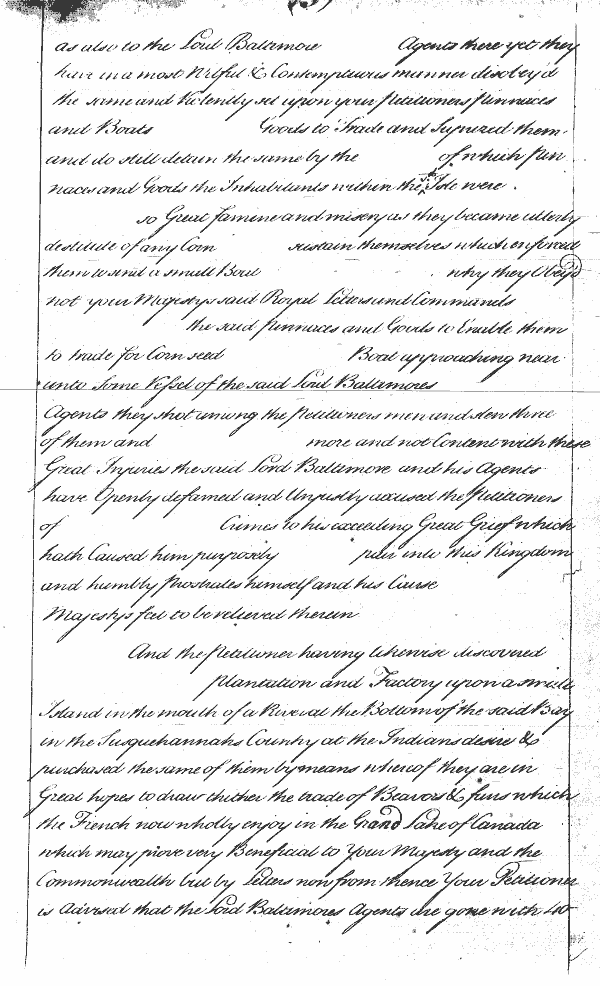 as also to the Lord Baltimore Agents there yet they
have in a most Wilful & Contemptuous manner disobey'd
the same and Violently set upon your Petitioners Pinnaces
and Boats Goods to Trade and Seyzed them
and do still detain the same by the of which Pin
naces and Goods the Inhabitants within the sd Isle were
so Great famine and misery as they became utterly
destitute of any Corn sustain themselves which enforced
them to send a small Boat why they Obey'd
not your Majestys said Royal Letters and Commands
the said Pinnaces and Goods to Enable them
to trade for Corn seed Boat approaching near
unto some Vessel of the said Lord Baltimores
Agents they shot among the Petitioners men and slew three
of them and more and not Content with these
Great Injuries the said Lord Baltimore and his Agents
have Openly defamed and Unjustly accused the Petitioners
of Crimes to his exceeding Great Grief which
hath Caused him purposely into this Kingdom
and humbly Prostrates himself and his Cause
Majestys feet to be relieved therein
And the Petitioner having likewise discovered
Plantation and Factory upon a small
Island in the mouth of a River at the Bottom of the said Bay
in the Susquehannahs Country at the Indians desire &
purchased the same of them by means whereof they are in
Great hopes to draw thither the trade of Beavors & furs which
the French now wholly enjoy in the Grand Lake of Canada
which may prove very Beneficial to Your Majesty and the
Commonwealth but by Letters now from thence Your Petitioner
is advised that the Lord Baltimores Agents are gone with